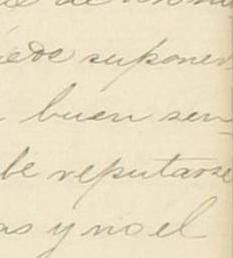 ede suponer
buen sen-
be reputarse
as y no el